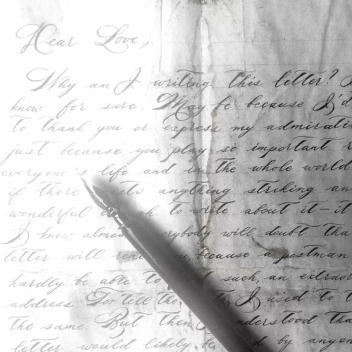 Dear Love,
Why am I writing this letter? I
know for sure. May be because I'd
to thank you or express my admirati
just because you play so important r
everyone's life and in the whole world
if there anything striking an
wonderful to write about it - it
I know almo rybody will doubt tha
letter will re because a postman
hardly be able to such, an extrao
address. To tell the I used to t
the same. But then derstood tha
letter would likely be d by anyon